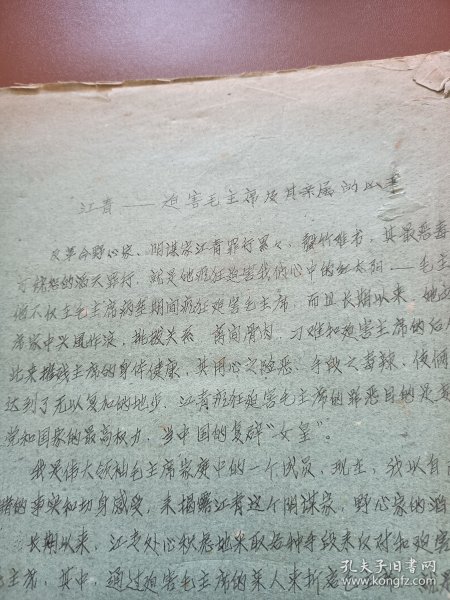 江青——迫害毛主席及其亲属的凶手
反革命野心家、阴谋家江青罪行累々、罄竹难书，其最恶毒
可饶恕的滔天罪行，就是她疯狂迫害我们心中的红太阳——毛主
她不仅在毛主席病重期间疯狂迫害毛主席，而且长期以来，她在
席家中兴风作浪，挑拨关系，离间骨肉，刁难和迫害主席的后代
此来摧残主席的身体健康，其用心之险恶、手段之毒辣，
达到了无以复加的地步。江青疯狂迫害毛主席的罪恶目的是
党和国家的最高权力，当中国的复辟“女皇”。
我是伟大领袖毛主席家庭中的一个成员，现在，我以自
睹的事实和切身感受，来揭露江青这个阴谋家，野心家的
长期以来，江青处心积虑地采取各种手段来反对和迫害
主席，其中，通过迫害毛主席的亲人来折
孔夫子旧书网